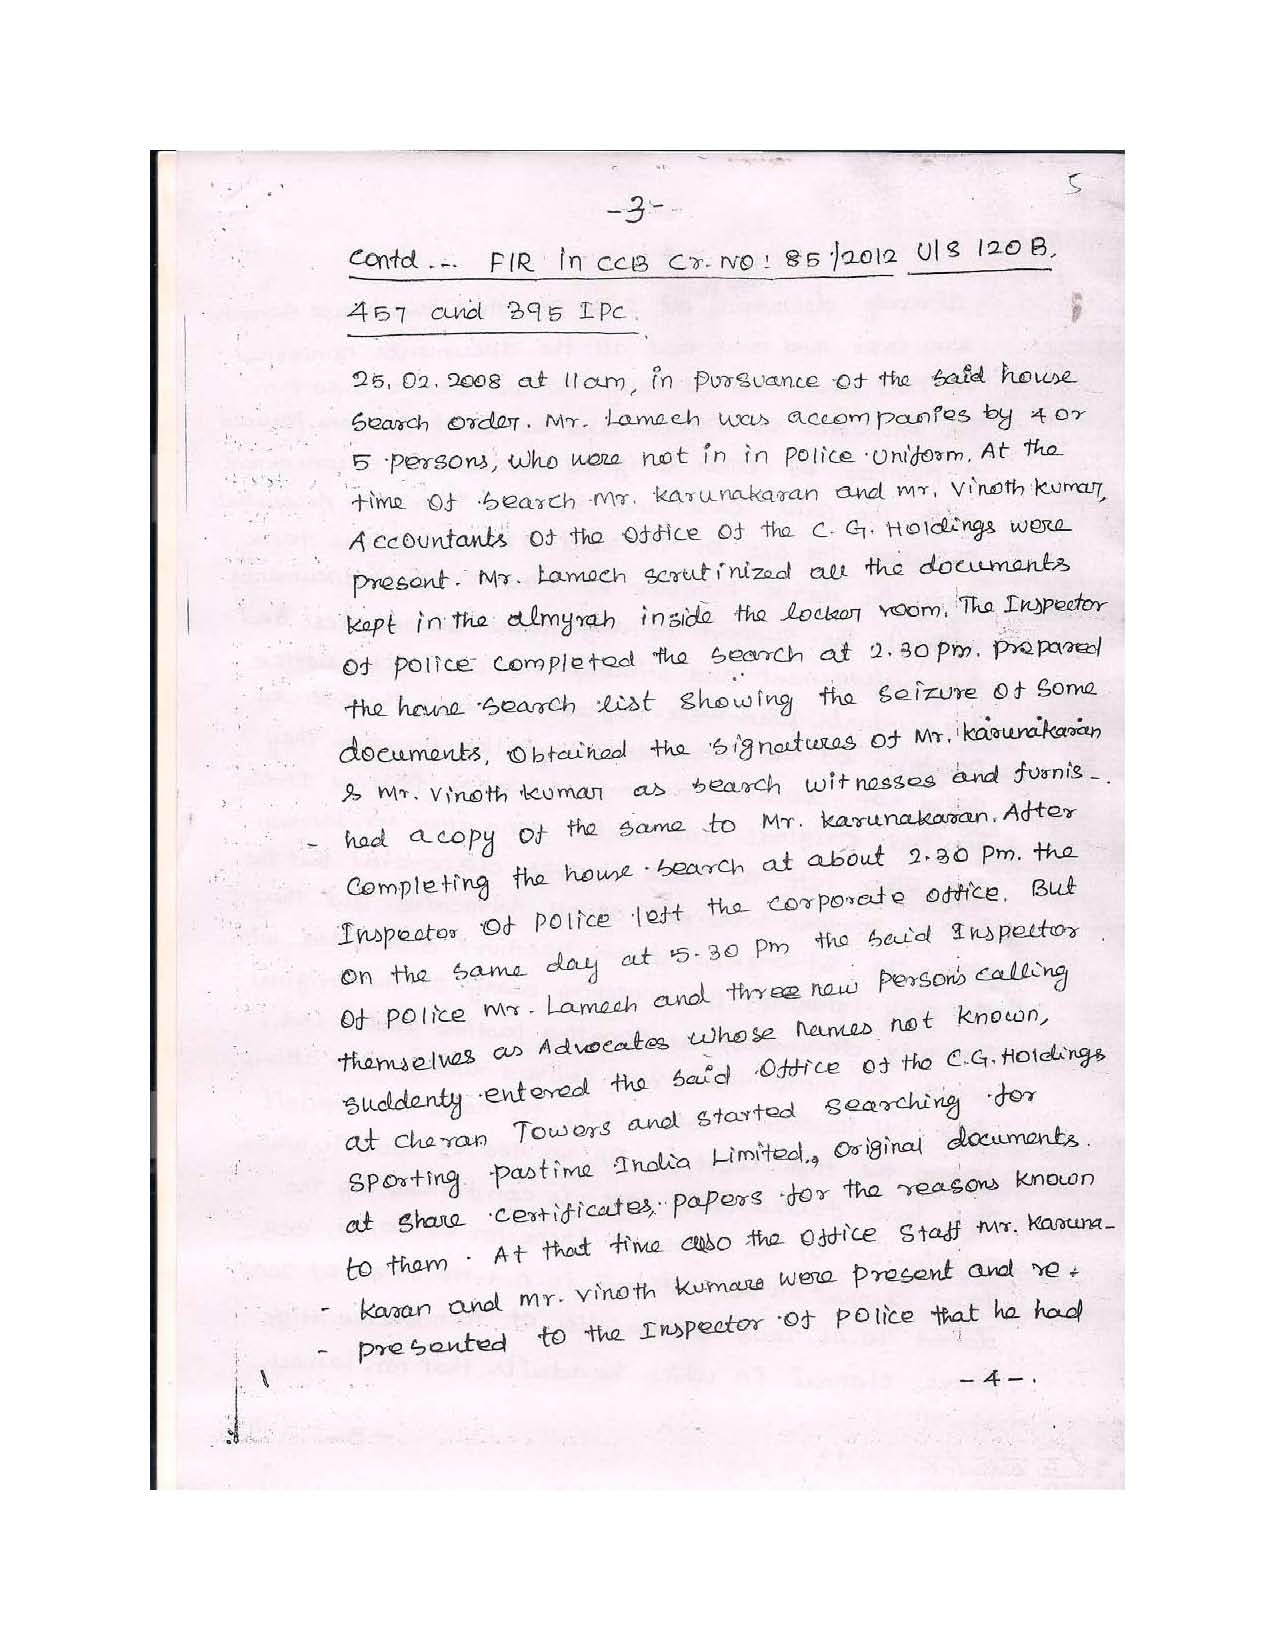 5
-3-
Contd... FIR in CCB Cr. NO: 85/2012 U/S 120 B,
457 and 395 IPC.
25.02.2008 at 11am, in Pursuance of the said house
Search order. Mr. Lamech was accompanies by 4 or
5 persons, who were not in in Police Uniform. At the
time of search Mr. Karunakaran and Mr. Vinoth Kumar,
Accountants of the Office of the C. G. Holdings were
present. Mr. Lamech scrutinized all the documents
kept in the almyrah inside the locker room. The Inspector
of police completed the search at 2.30 pm. prepared
the house search list showing the seizure of some
documents, obtained the signatures of Mr. Karunakaran
& Mr. Vinoth Kumar as search witnesses and furnis-
- hed a copy of the same to Mr. Karunakaran. After
Completing the house search at about 2.30 Pm. the
Inspector of police left the corporate office. But
on the same day at 5.30 Pm the said Inspector
of police Mr. Lamech and three new persons calling
themselves as Advocates whose names not known,
suddenty entered the said Office of the C.G. Holdings
at Cheran Towers and started searching for
Sporting pastime India Limited., original documents.
at share certificates, papers for the reasons known
to them. At that time also the office staff Mr. Karuna-
- karan and Mr. Vinoth Kumar were present and re-
- presented to the Inspector of police that he had
-4-.